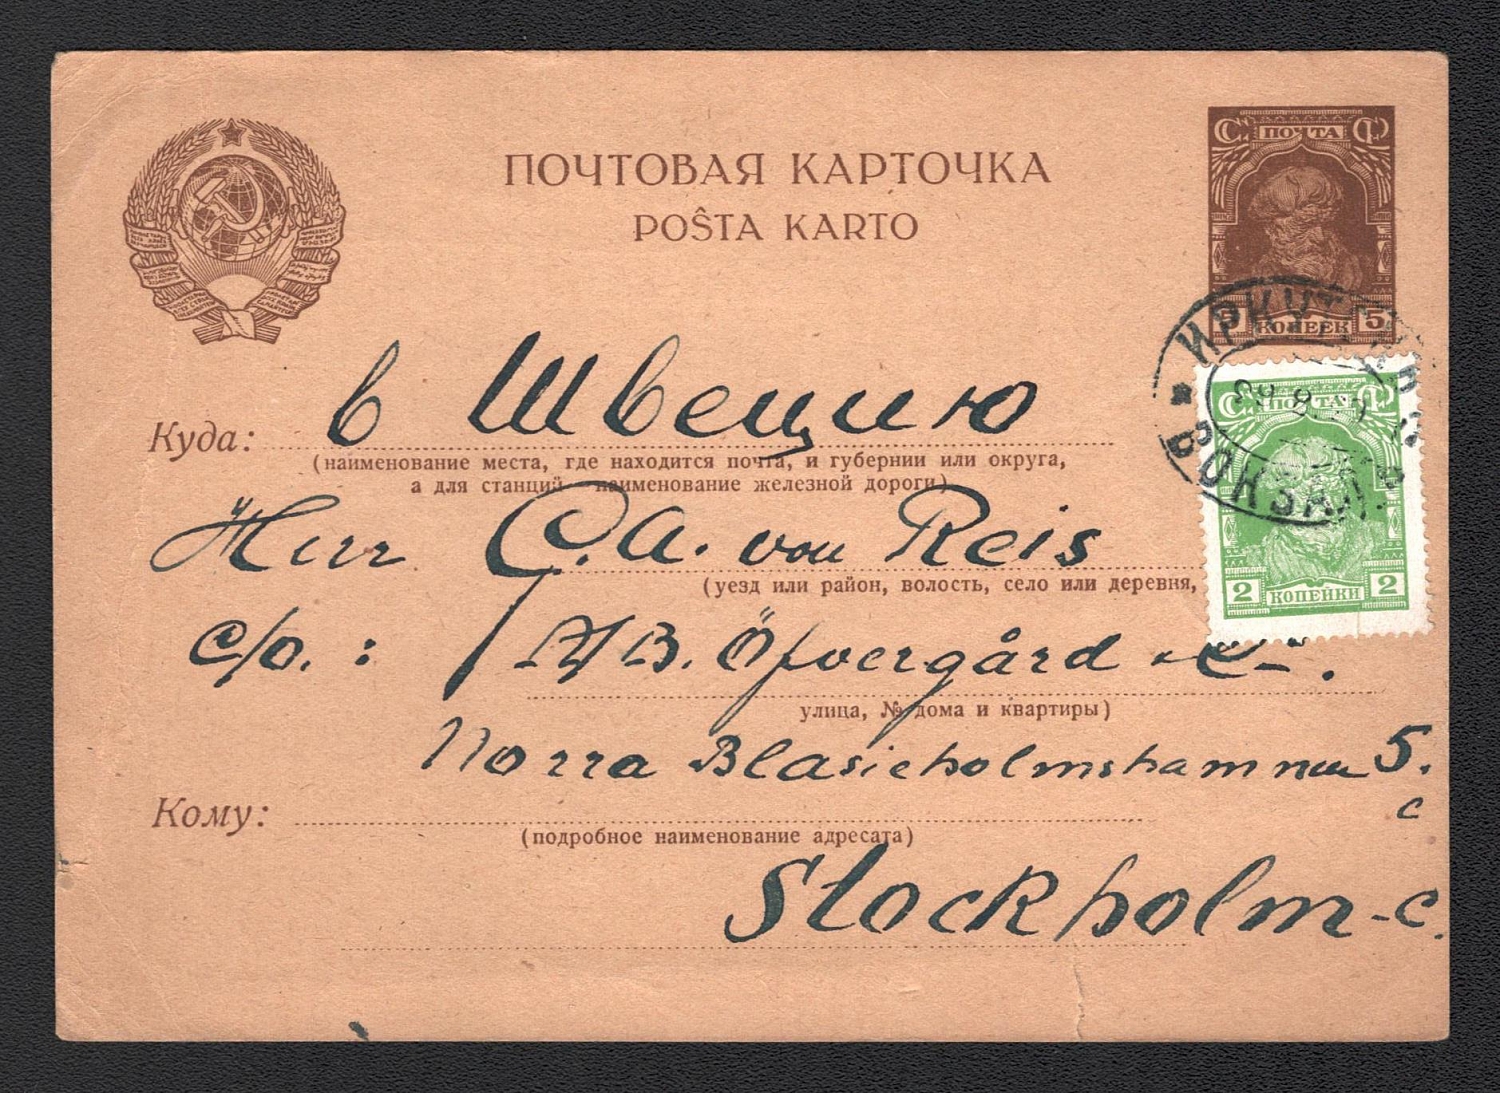 ПОЧТОВАЯ КАРТОЧКА
POŜTA KARTO
С. ПОЧТА С.Р.
5 КОПЕЕК 5
ИРКУТСК
ВОКЗАЛ
С. ПОЧТА С.Р.
2 КОПЕЙКИ 2
Куда: в Швецию
(наименование места, где находится почта, и губернии или округа,
а для станций наименование железной дороги)
Herr C.A. von Reis
(уезд или район, волость, село или деревня,
c/o. : A/B. Öfvergård &
улица, № дома и квартиры)
Norra Blasieholmshamnen 5.
c
Кому:
(подробное наименование адресата)
Stockholm-c.